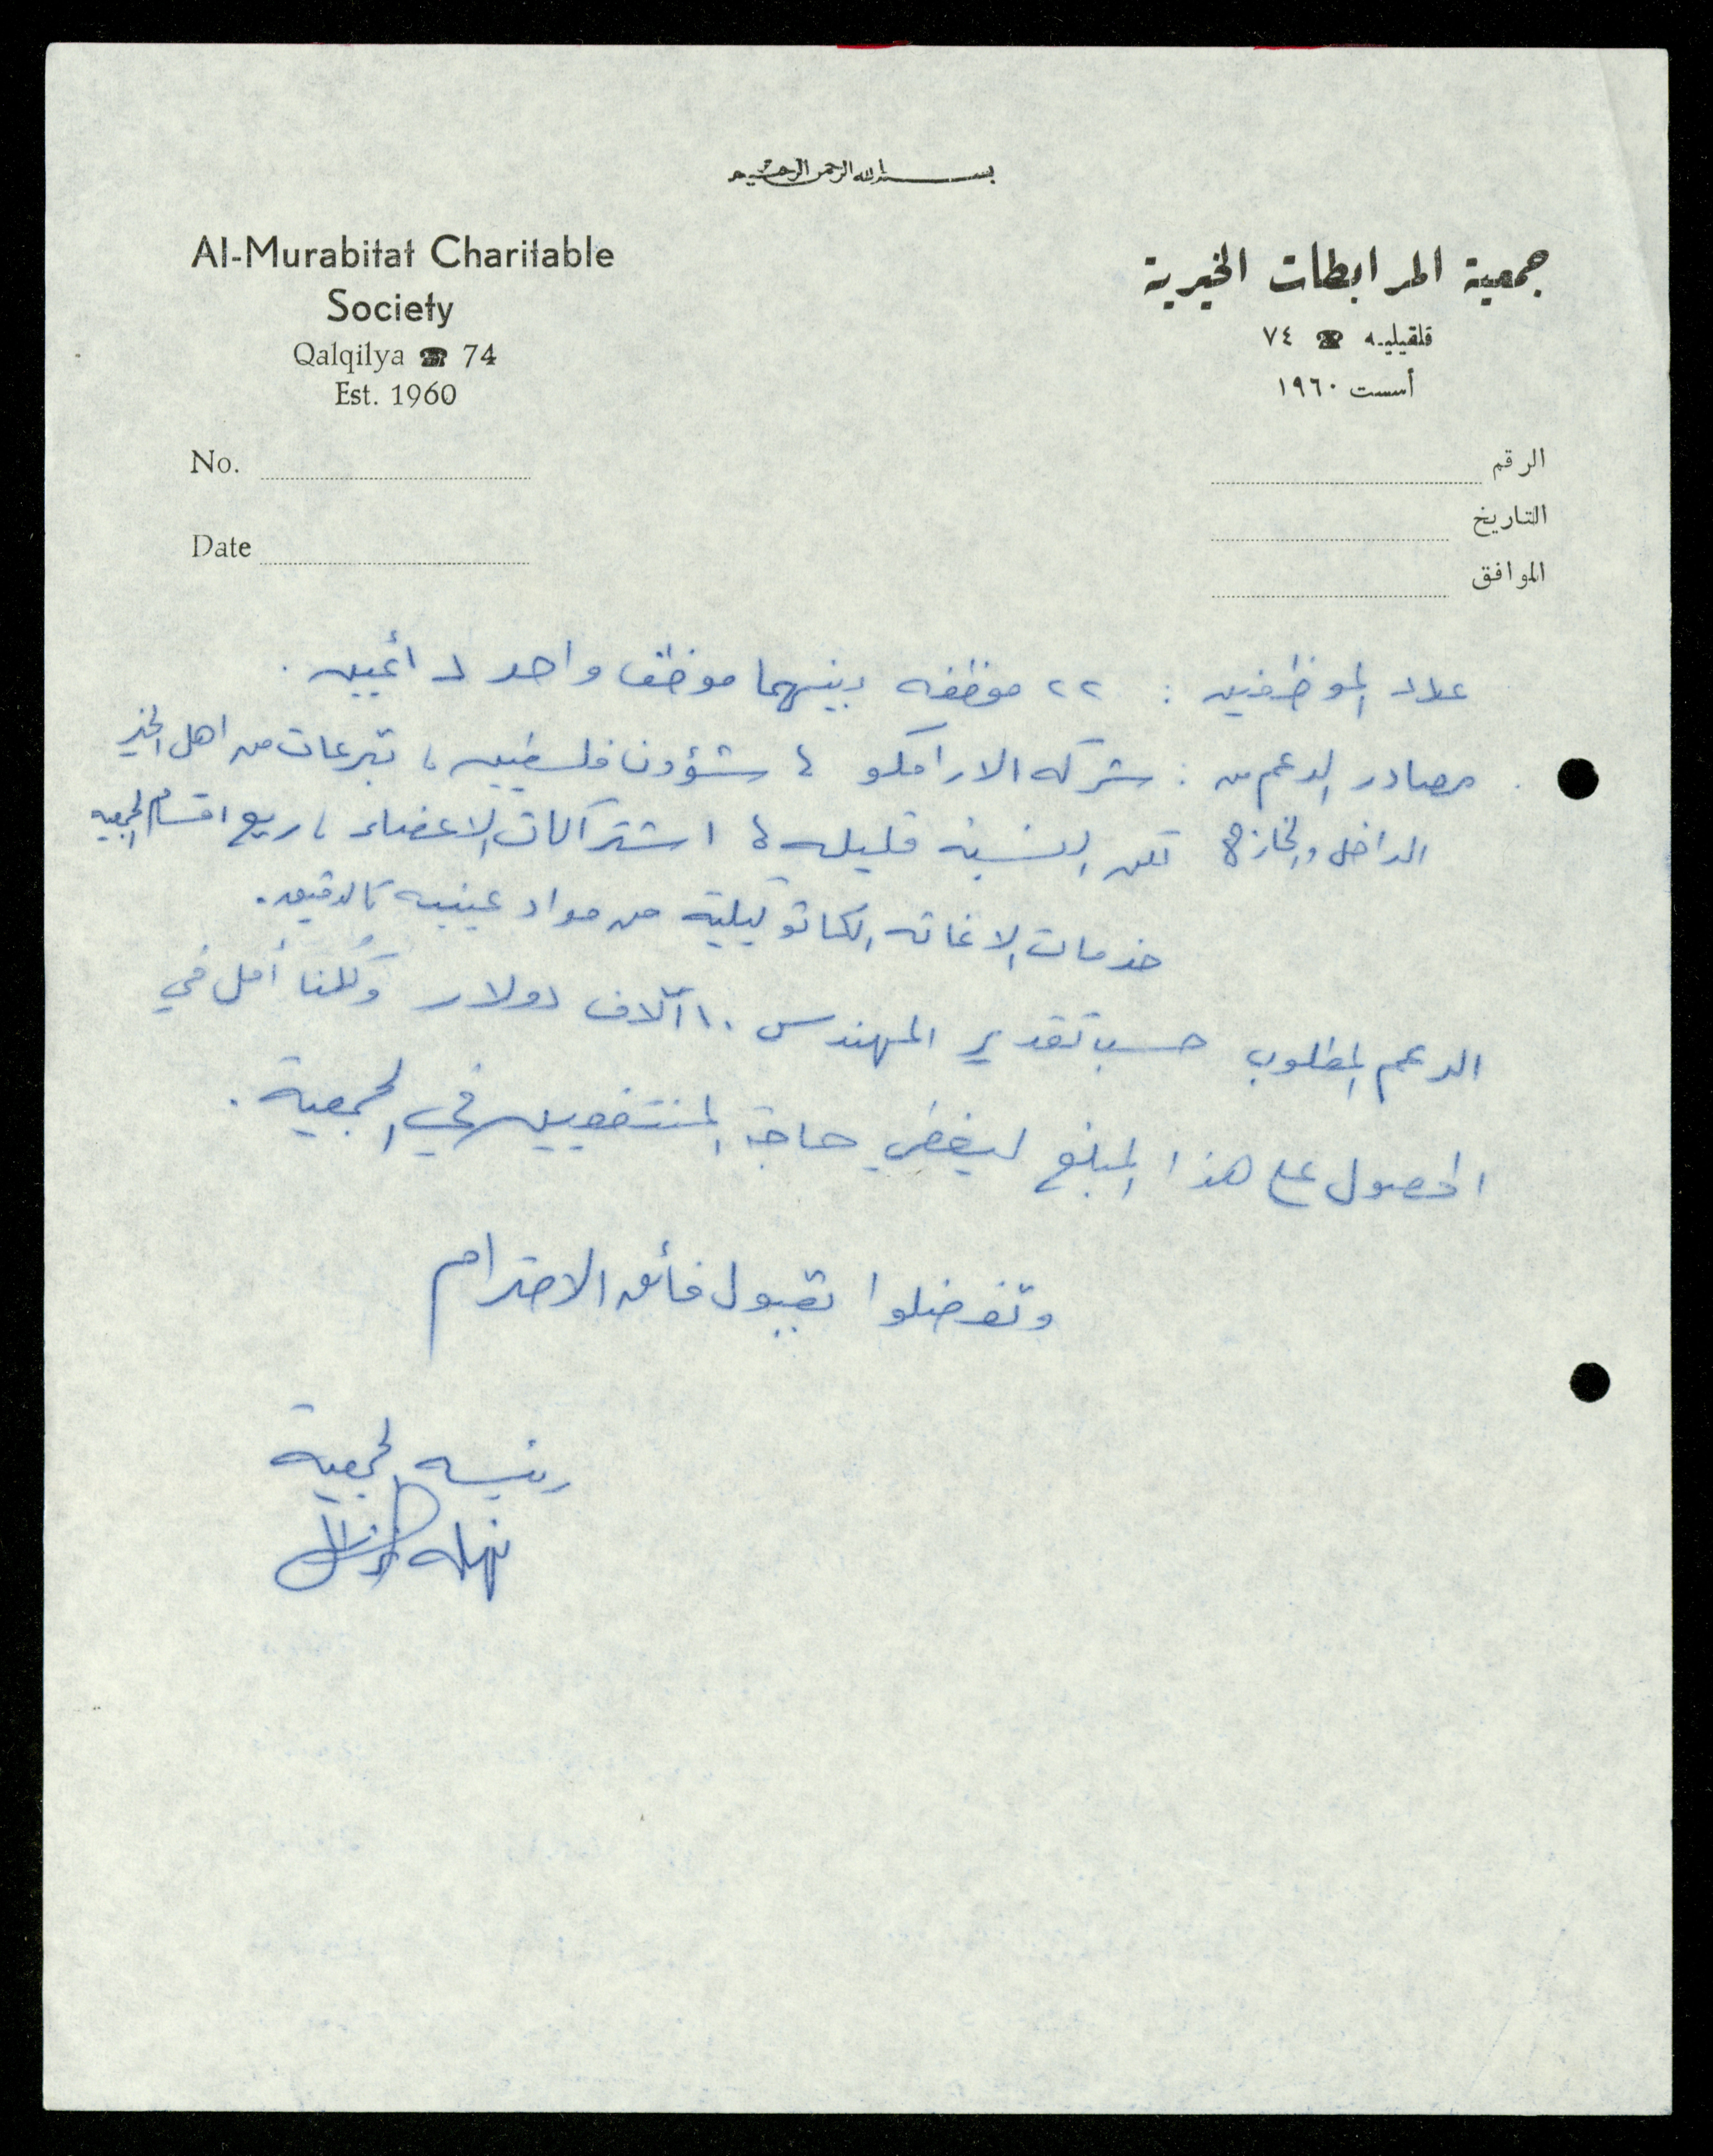 بسم الله الرحمن الرحيم
Al-Murabitat Charitable
Society
Qalqilya ☎ 74
Est. 1960
No.
Date
جمعية المرابطات الخيرية
قلقيليه ☎ ٧٤
أسست ١٩٦٠
الرقم
التاريخ
الموافق
عدد الموظفين : ٢٢ موظفه بينهما موظف واحد دائمين .
مصادر الدعم من : شركه الارامكو ، شؤون فلسطين ، تبرعات من اهل الخير
الداخل والخارج لكن النسبة قليله ، اشتراكات الاعضاء ، ريع اقسام الجمعيه
خدمات الاغاثه الكاثوليكية من مواد عينيه كالدقيق .
الدعم المطلوب حسب تقدير المهندس ١٠ آلاف دولار وكُلنا أمل في
الحصول على هذا المبلغ ليغطي حاجة المنتفعين في الجمعية .
وتفضلوا بقبول فائق الاحترام
رئيسه الجمعية
نهله